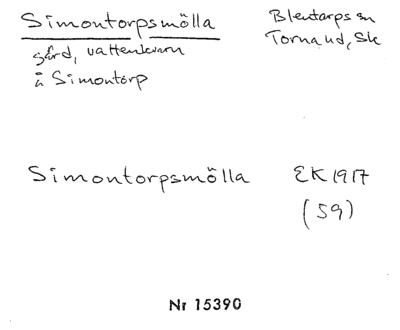 Simontorpsmölla
gård, vattenkvarn
å Simontorp
Blentarps sn
Torna hd, Sk
Simontorpsmölla EK 1917
(59)
Nr 15390